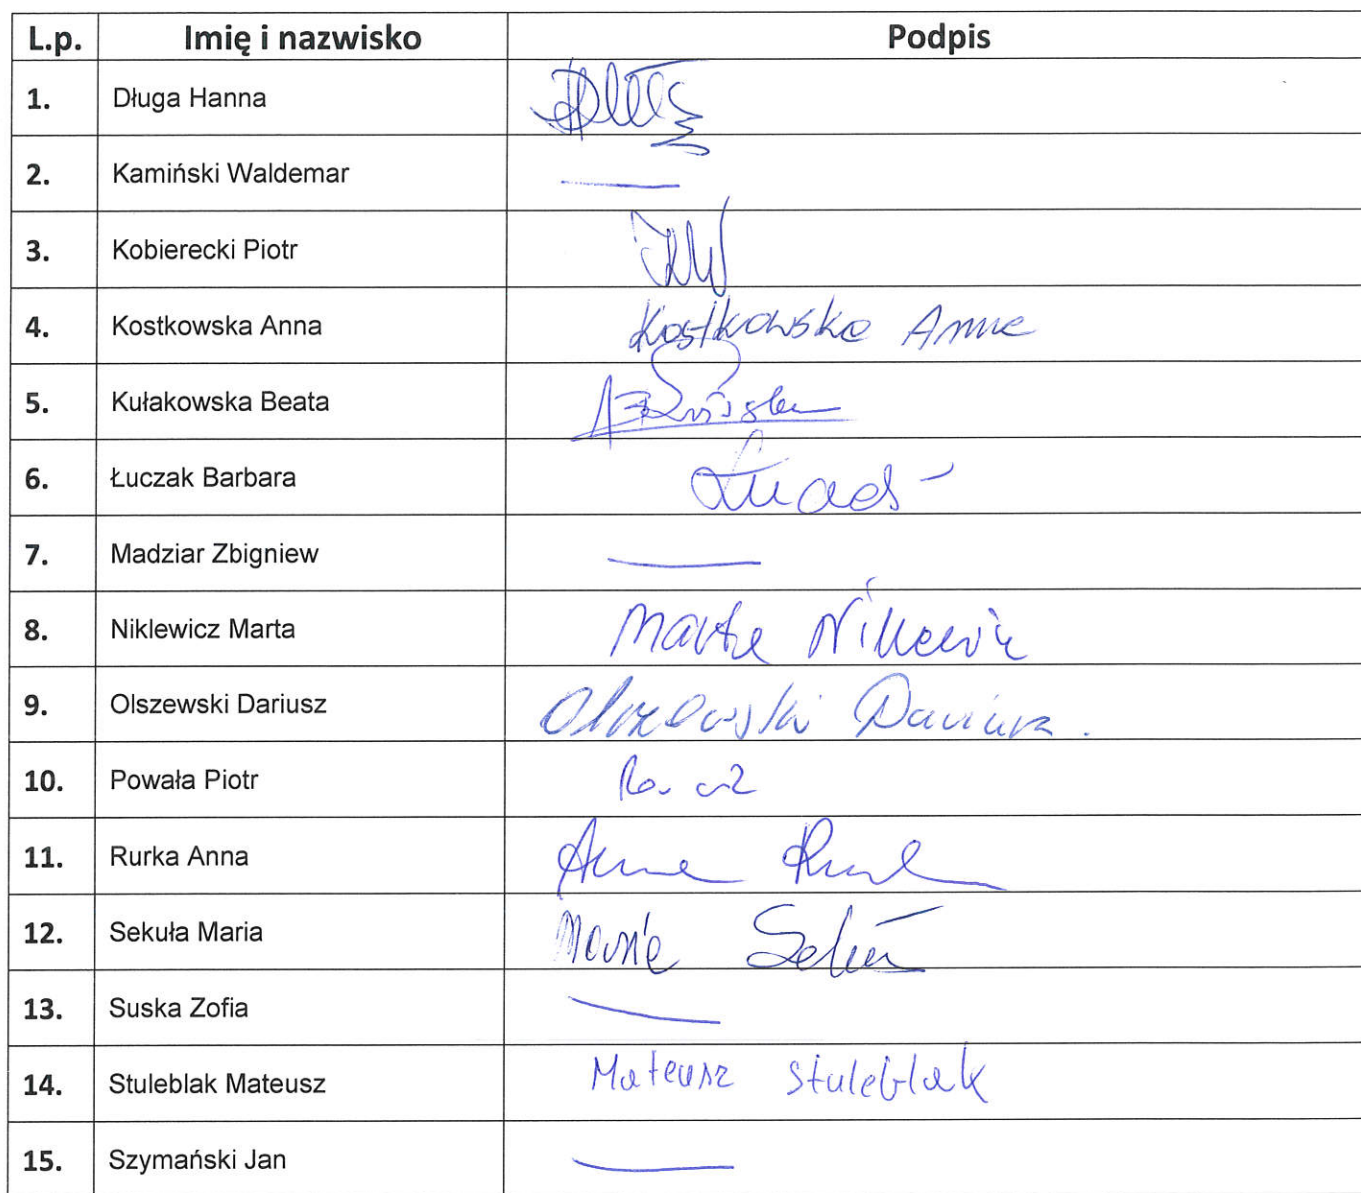 L.p. Imię i nazwisko Podpis
1. Długa Hanna
2. Kamiński Waldemar
3. Kobierecki Piotr
4. Kostkowska Anna Kostkowska Anna
5. Kułakowska Beata
6. Łuczak Barbara
7. Madziar Zbigniew
8. Niklewicz Marta Marta Niklewicz
9. Olszewski Dariusz Olszewski Dariusz
10. Powała Piotr
11. Rurka Anna Anna
12. Sekuła Maria Maria
13. Suska Zofia
14. Stuleblak Mateusz Mateusz Stuleblak
15. Szymański Jan